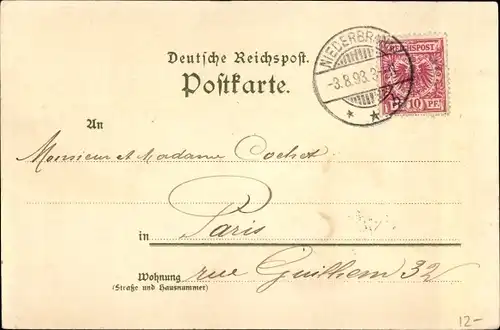 Deutsche Reichspost.
Postkarte.
NIEDERBRONN
-3.8.98.
REICHSPOST
10 PF.
An
Monsieur et Madame Cochet
in Paris
Wohnung rue Guilhem 32
(Straße und Hausnummer)
12-